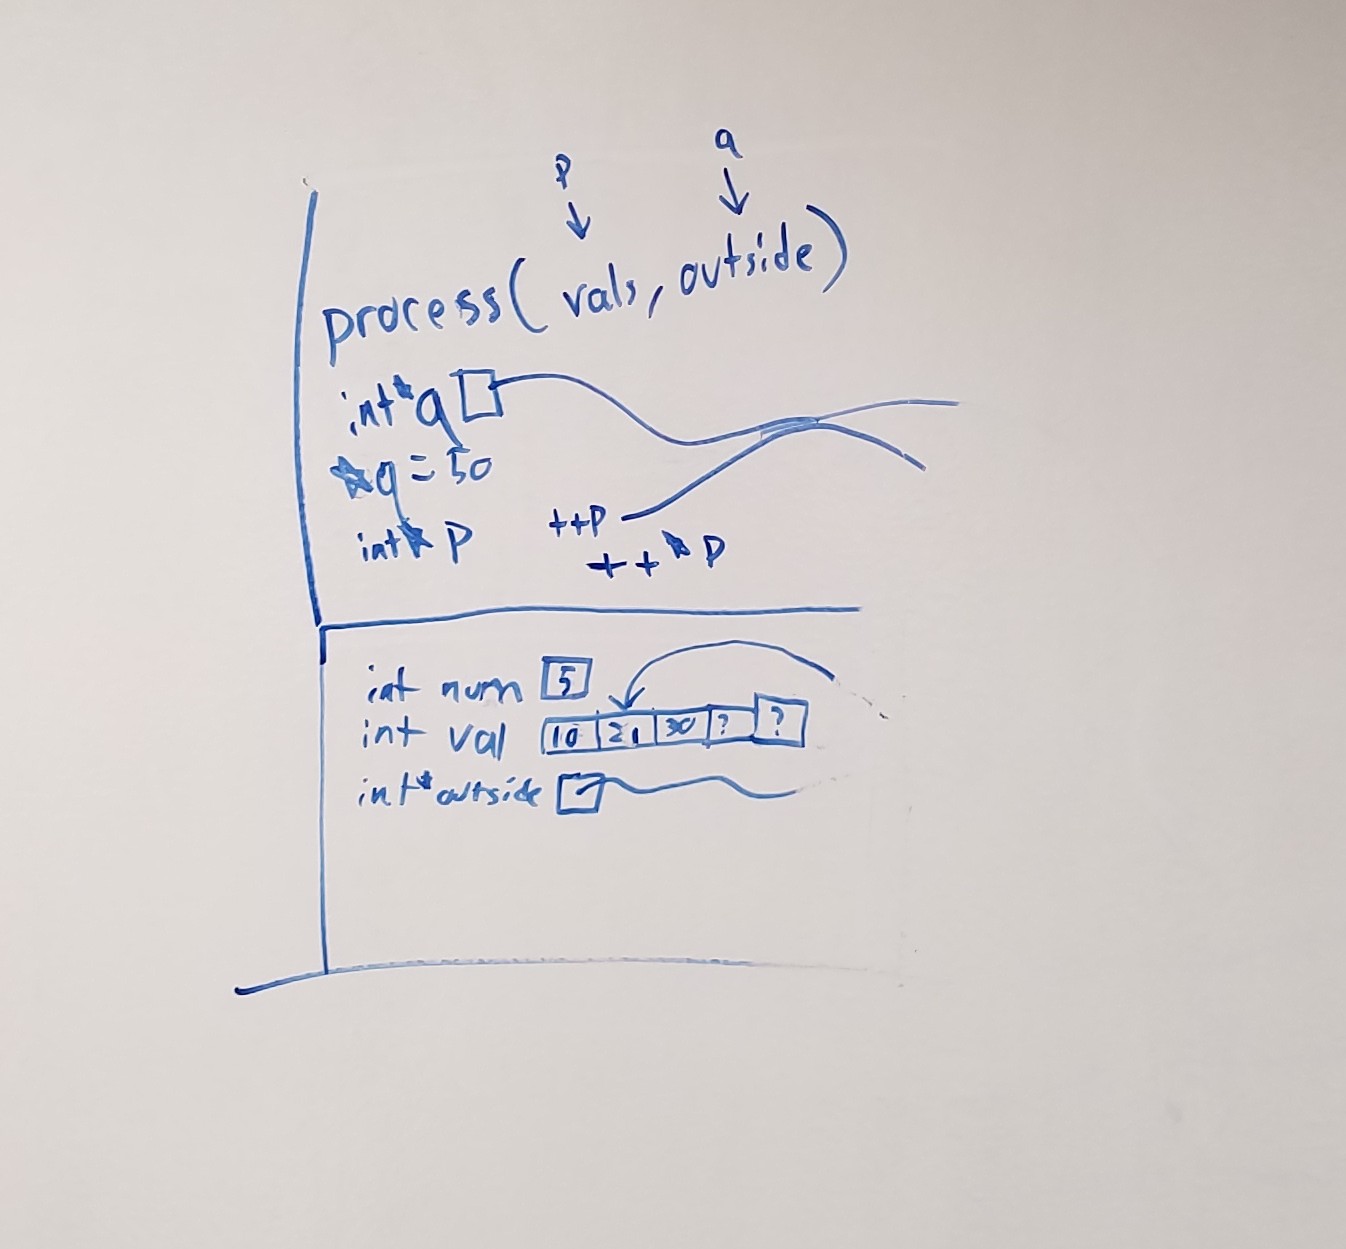 p q
process( vals, outside)
int* q
*q = 50
int* p ++p
++*p
int num 5
int val 10 21 30 ? ?
int* outside